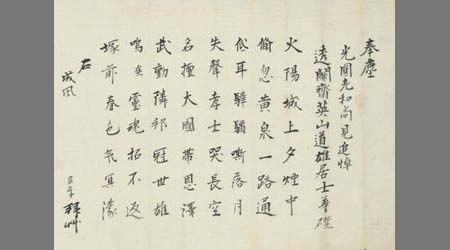 奉塵
光圓老和尚見追悼
透關齋英山道雄居士尊
火陽城上夕煙中
倏忽黄泉一路通
低耳驊騮嘶落月
失聲孝士哭長空
名擅大國帶恩澤
武動隣邦冠世雄
嗚矣靈魂招不返
塚前春色氣冥濛
右
成凨
拜艸